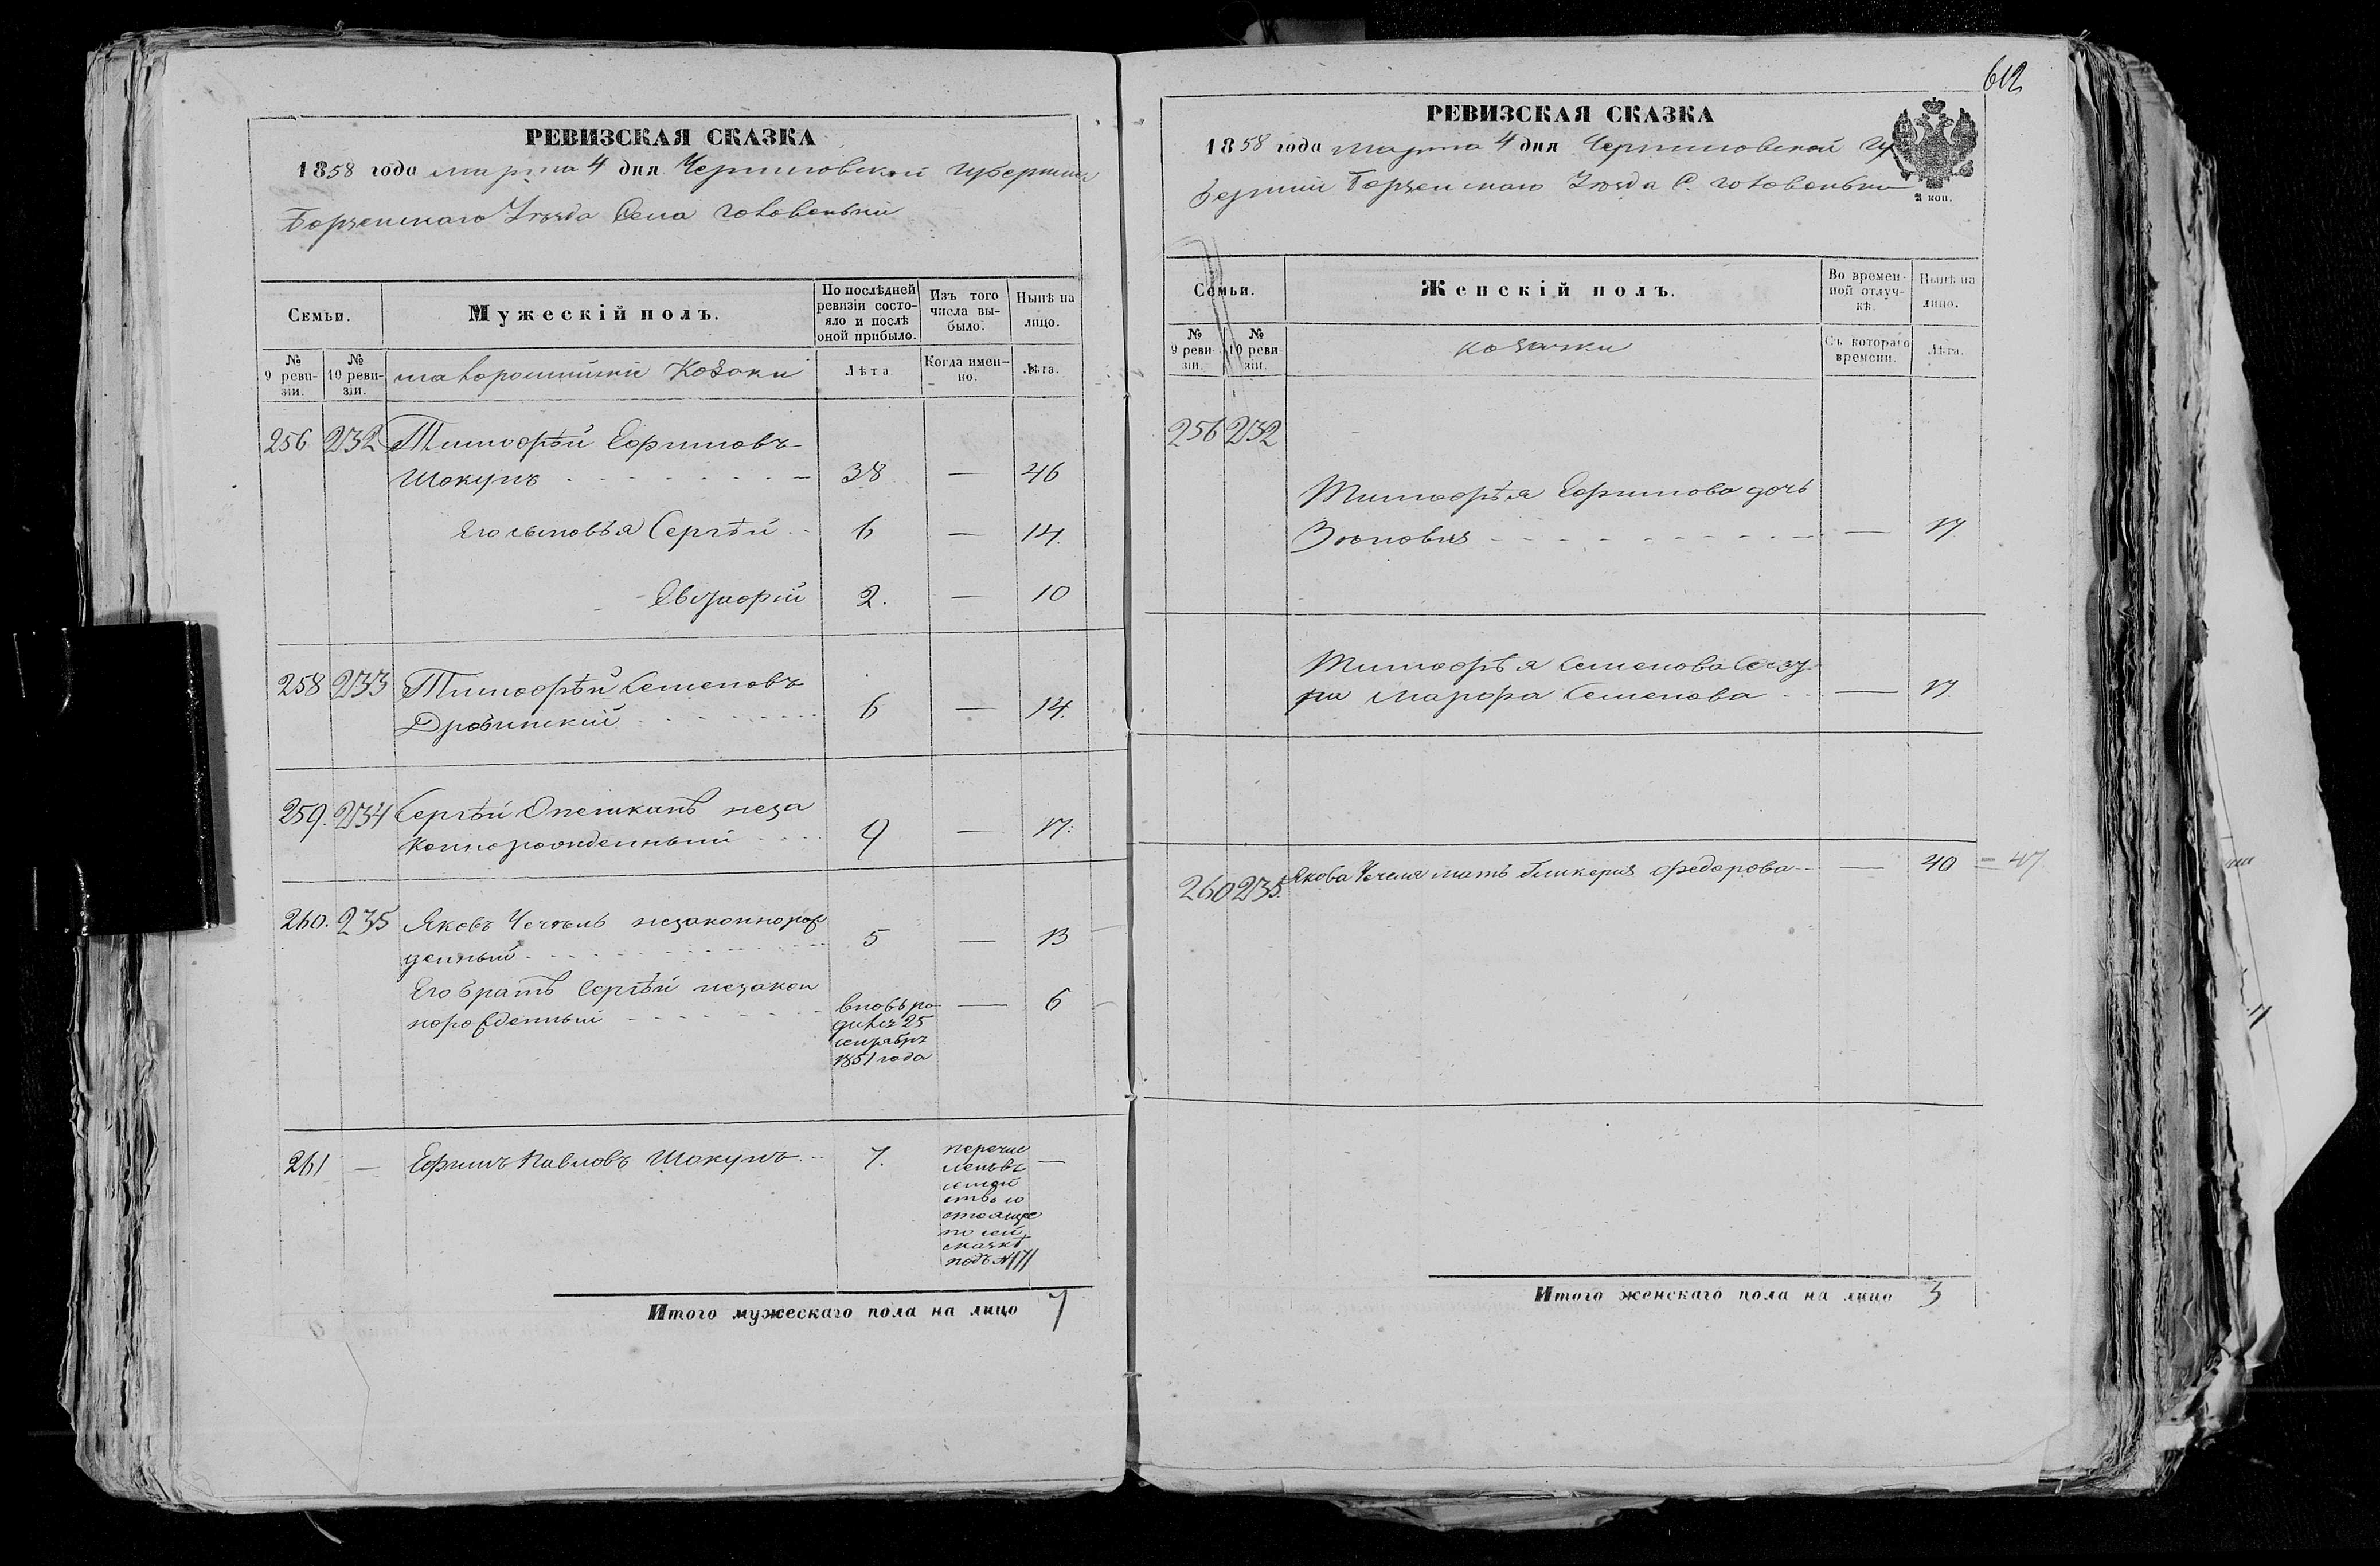 РЕВИЗСКАЯ СКАЗКА
1858 года марта 4 дня Черниговской губернии
Борзенскаго Уѣзда Села Головеньки
Семьи.
Мужескій полъ.
По послѣдней ревизіи состояло и послѣ оной прибыло.
Изъ того числа выбыло.
Нынѣ на лицо.
№ 9 ревизіи.
№ 10 ревизіи.
малороссійскіе Козаки
Лѣта.
Когда именно.
Лѣта.
256 232 Тимофѣй Ефимовъ
Шокунъ 38 — 46
Его сыновья Сергѣй 6 — 14.
2. — 10
258 233 Тимофѣй Семеновъ
6 — 14.
259. 234 Сергѣй неза
коннорожденный 9 — 17.
260. 235 Яковъ Чечель незаконнорож
денный 5 — 13
Его братъ Сергѣй незакон
норожденный вновь ро — 6
дился 25
сентября
1851 года
261 — Ефимъ Павловъ Шокунъ 7. перечис —
ленъ въ
семей
ство со
стояще
по сей
сказкѣ
подъ №171
Итого мужескаго пола на лицо 7
612
РЕВИЗСКАЯ СКАЗКА
1858 года марта 4 дня Черниговской Гу
берніи Борзенскаго Уѣзда С. Головеньки
2 коп.
Семьи.
Женскій полъ.
Во временной отлучкѣ.
Нынѣ на лицо.
№ 9 ревизіи.
№ 10 ревизіи.
козачки
Съ котораго времени.
Лѣта.
256 232
Тимофѣя Ефимова дочь
Зѣновия — 17
Тимофѣя Семенова сест
ра Марфа Семенова — 17.
260 235. Якова Чечеля мать Гликерия Федорова — 40 — 47
Итого женскаго пола на лицо 3